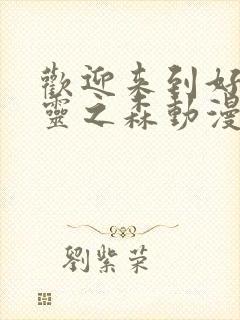 歡迎来到好
靈之森動漫
劉紫荣